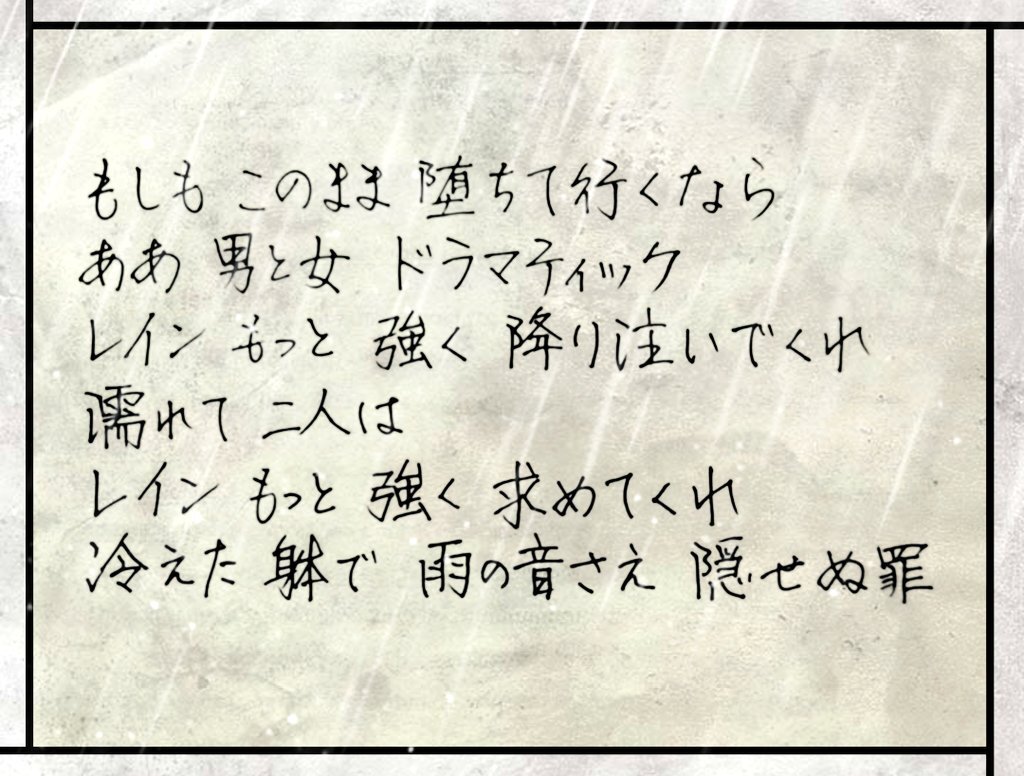 もしも このまま 堕ちて行くなら
ああ 男と女 ドラマティック
レイン もっと 強く 降り注いでくれ
濡れて 二人は
レイン もっと 強く 求めてくれ
冷えた 躰で 雨の音さえ 隠せぬ罪